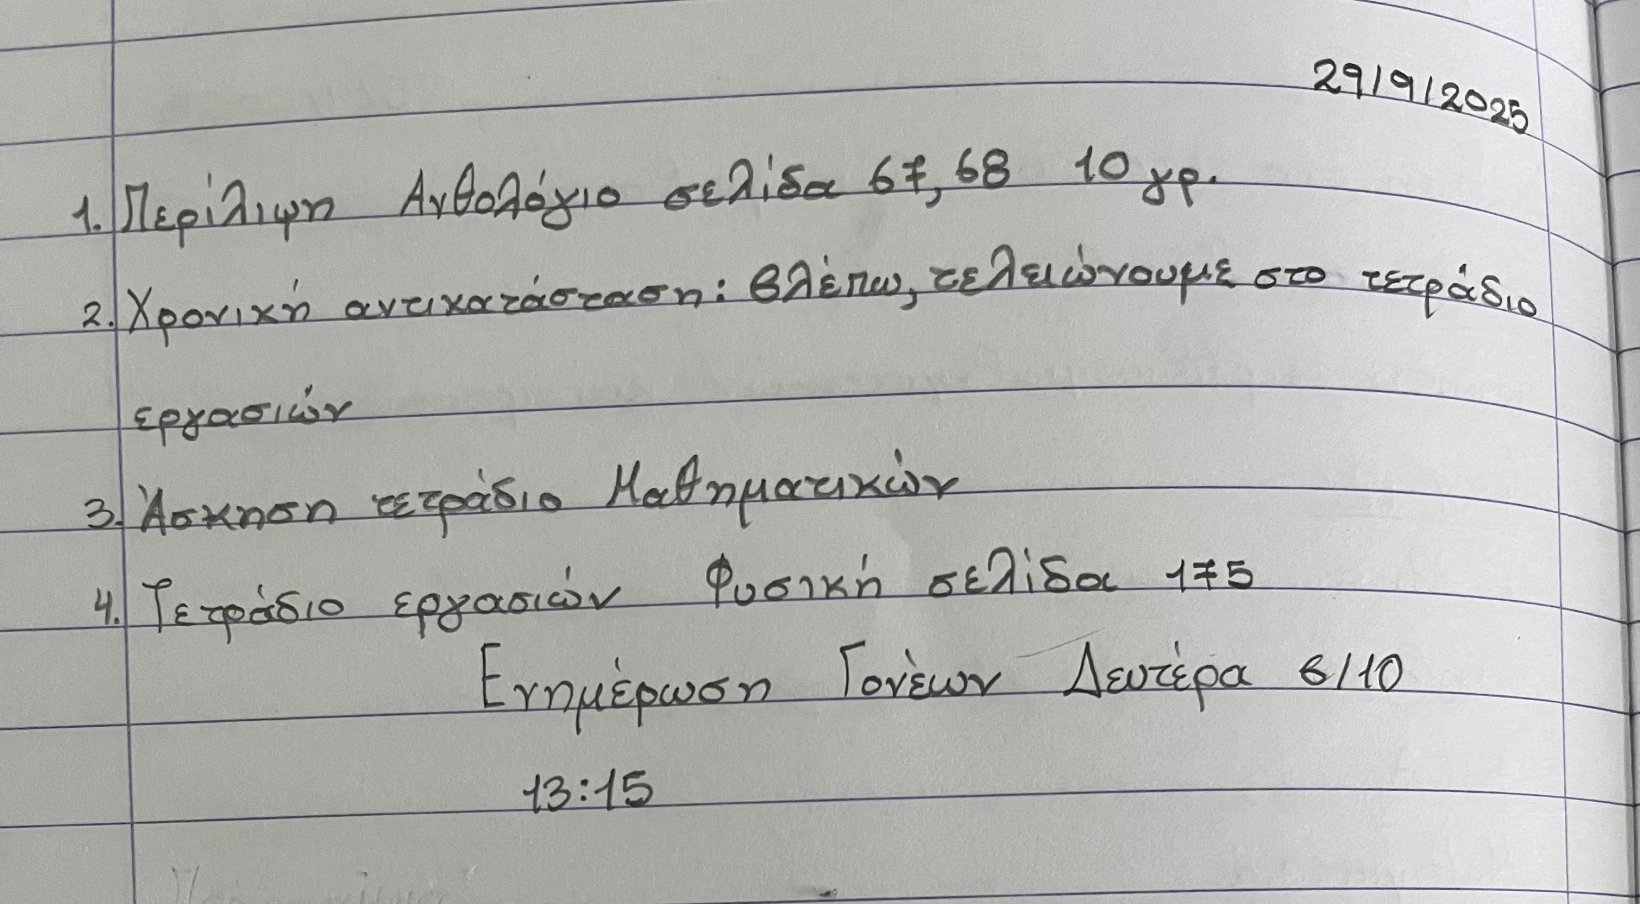 29/9/2025
1. Περίλιψη Ανθολόγιο σελίδα 67, 68 10 γρ.
2. Χρονική αντικατάσταση: βλέπω, τελειώνουμε στο τετράδιο
εργασιών
3. Άσκηση τετράδιο Μαθηματικών
4. Τετράδιο εργασιών Φυσική σελίδα 175
Ενημέρωση Γονέων Δευτέρα 6/10
13:15